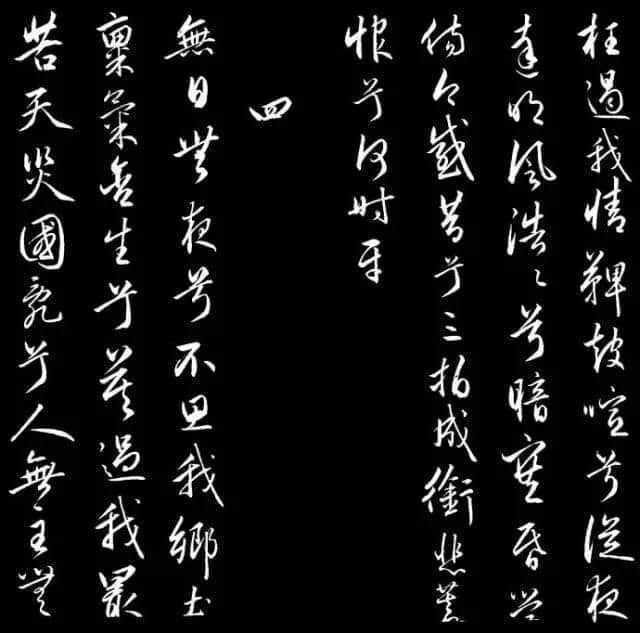 枉遏我情鞞鼓喧兮從夜
達明風浩〻兮暗塞昏營
傷今感昔兮三拍成銜悲蓄
恨兮何時平
四
無日無夜兮不思我鄉土
稟氣含生兮莫過我最
苦天災國亂兮人無主